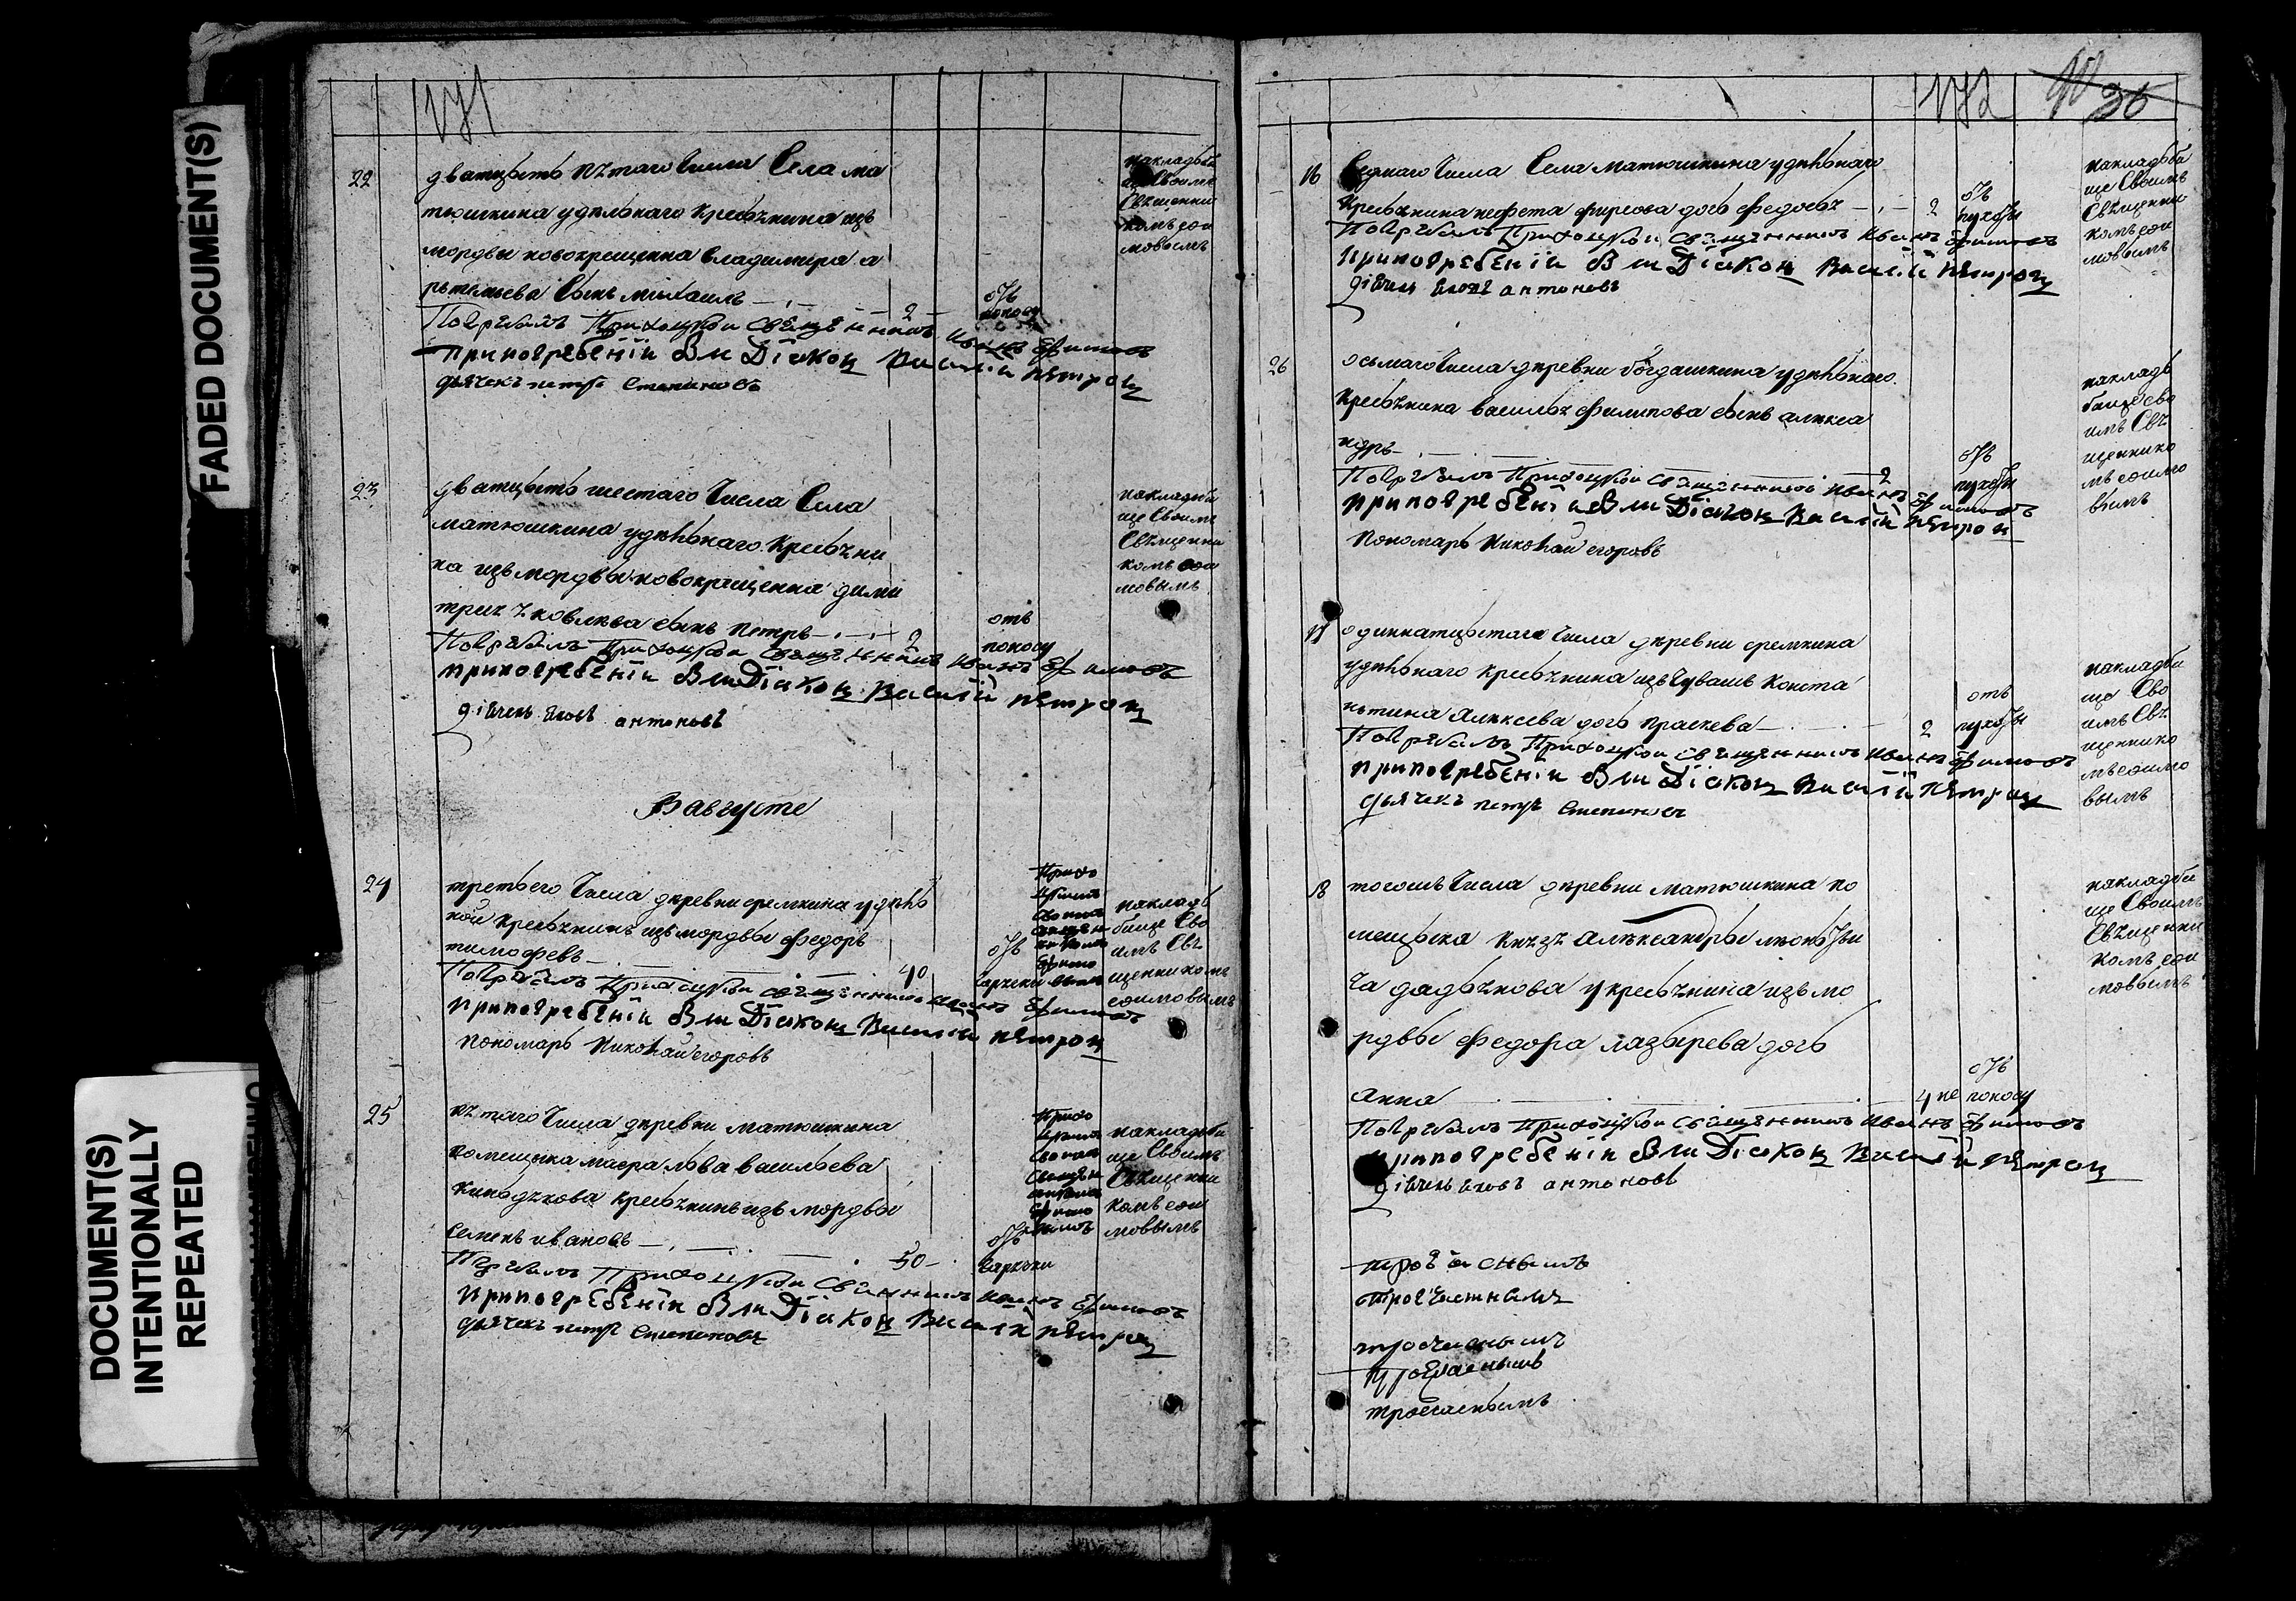 FADED DOCUMENT(S)
DOCUMENT(S)
INTENTIONALLY
REPEATED
171
22
дватцеть пятаго Числа Села ма
тюшкина удельнаго крестьянина изъ
мордвы новокрещенна Владимира а
ртемьева сынъ михаилъ
2
отъ
поносу
накладби
ще Своимъ
Священни
комъ ефи
мовымъ
Погребалъ Приходской священникъ Иванъ Ефимовъ
При погребении были Диаконъ Василий Петровъ
дьячекъ петръ Степановъ
23
дватцеть шестаго Числа Села
матюшкина удельнаго крестьяни
на изъ мордвы новокрещенна дими
трия яковлева сынъ петръ
2
отъ
поносу
накладби
ще Своимъ
Священни
комъ ефи
мовымъ
Погребалъ Приходской священникъ Иванъ Ефимовъ
При погребении были Диаконъ Василий Петровъ
дiячекъ яковъ антоновъ
В августе
24
третьего Числа деревни еремкина удельно
ной крестьянинъ изъ мордвы федоръ
тимофевъ
40
отъ
горячки
накладб
бище Сво
имъ Свя
щенникомъ
ефимовымъ
Погребалъ Приходской священникъ Иванъ Ефимовъ
При погребении были Диаконъ Василий Петровъ
пономарь Николай егоровъ
25
пятаго Числа деревни матюшкина
помещика маера льва васильева
крестьянинъ изъ мордвы
Семенъ ивановъ
50
отъ
горячки
накладби
ще Своимъ
Священни
комъ ефи
мовымъ
Погребалъ Приходской священникъ Иванъ Ефимовъ
При погребении были Диаконъ Василий Петровъ
дьячекъ петръ Степановъ
172
36
16
Седмаго Числа Села матюшкина удельнаго
крестьянина нефеда фирсова дочь федосья
2
отъ
накладби
ще Своимъ
Священни
комъ ефи
мовымъ
Погребалъ Приходской священникъ Иванъ Ефимовъ
При погребении были Диаконъ Василий Петровъ
дiячекъ яковъ антоновъ
26
осьмаго Числа деревни богдашкина удельнаго
крестьянина василья филипова сынъ алекса
ндръ
2
отъ
накладб
бище сво
имъ Свя
щеннико
мъ ефимо
вымъ
Погребалъ Приходской священникъ Иванъ Ефимовъ
При погребении были Диаконъ Василий Петровъ
Пономарь Николай егоровъ
17
одиннатцетаго Числа деревни еремкина
удельнаго крестьянина изъ Чувашъ Конста
нтина Алексеева дочь Праскева
2
отъ
накладби
ще Сво
имъ Свя
щеннико
мъ ефимо
вымъ
Погребалъ Приходской священникъ Иванъ Ефимовъ
При погребении были Диаконъ Василий Петровъ
дьячекъ петръ Степановъ
18
тогожъ Числа деревни матюшкина по
мещика князя Александры леонтьи
ча дадьянова у крестьянина изъ мо
рдвы федора лазырева дочь
анна
4 не
отъ
поносу
накладби
ще Своимъ
Священни
комъ ефи
мовымъ
Погребалъ Приходской священникъ Иванъ Ефимовъ
При погребении были Диаконъ Василий Петровъ
дiячекъ яковъ антоновъ